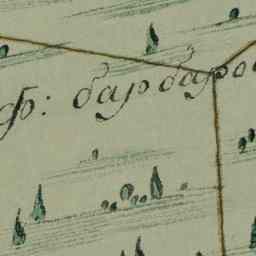 ф: барбаро